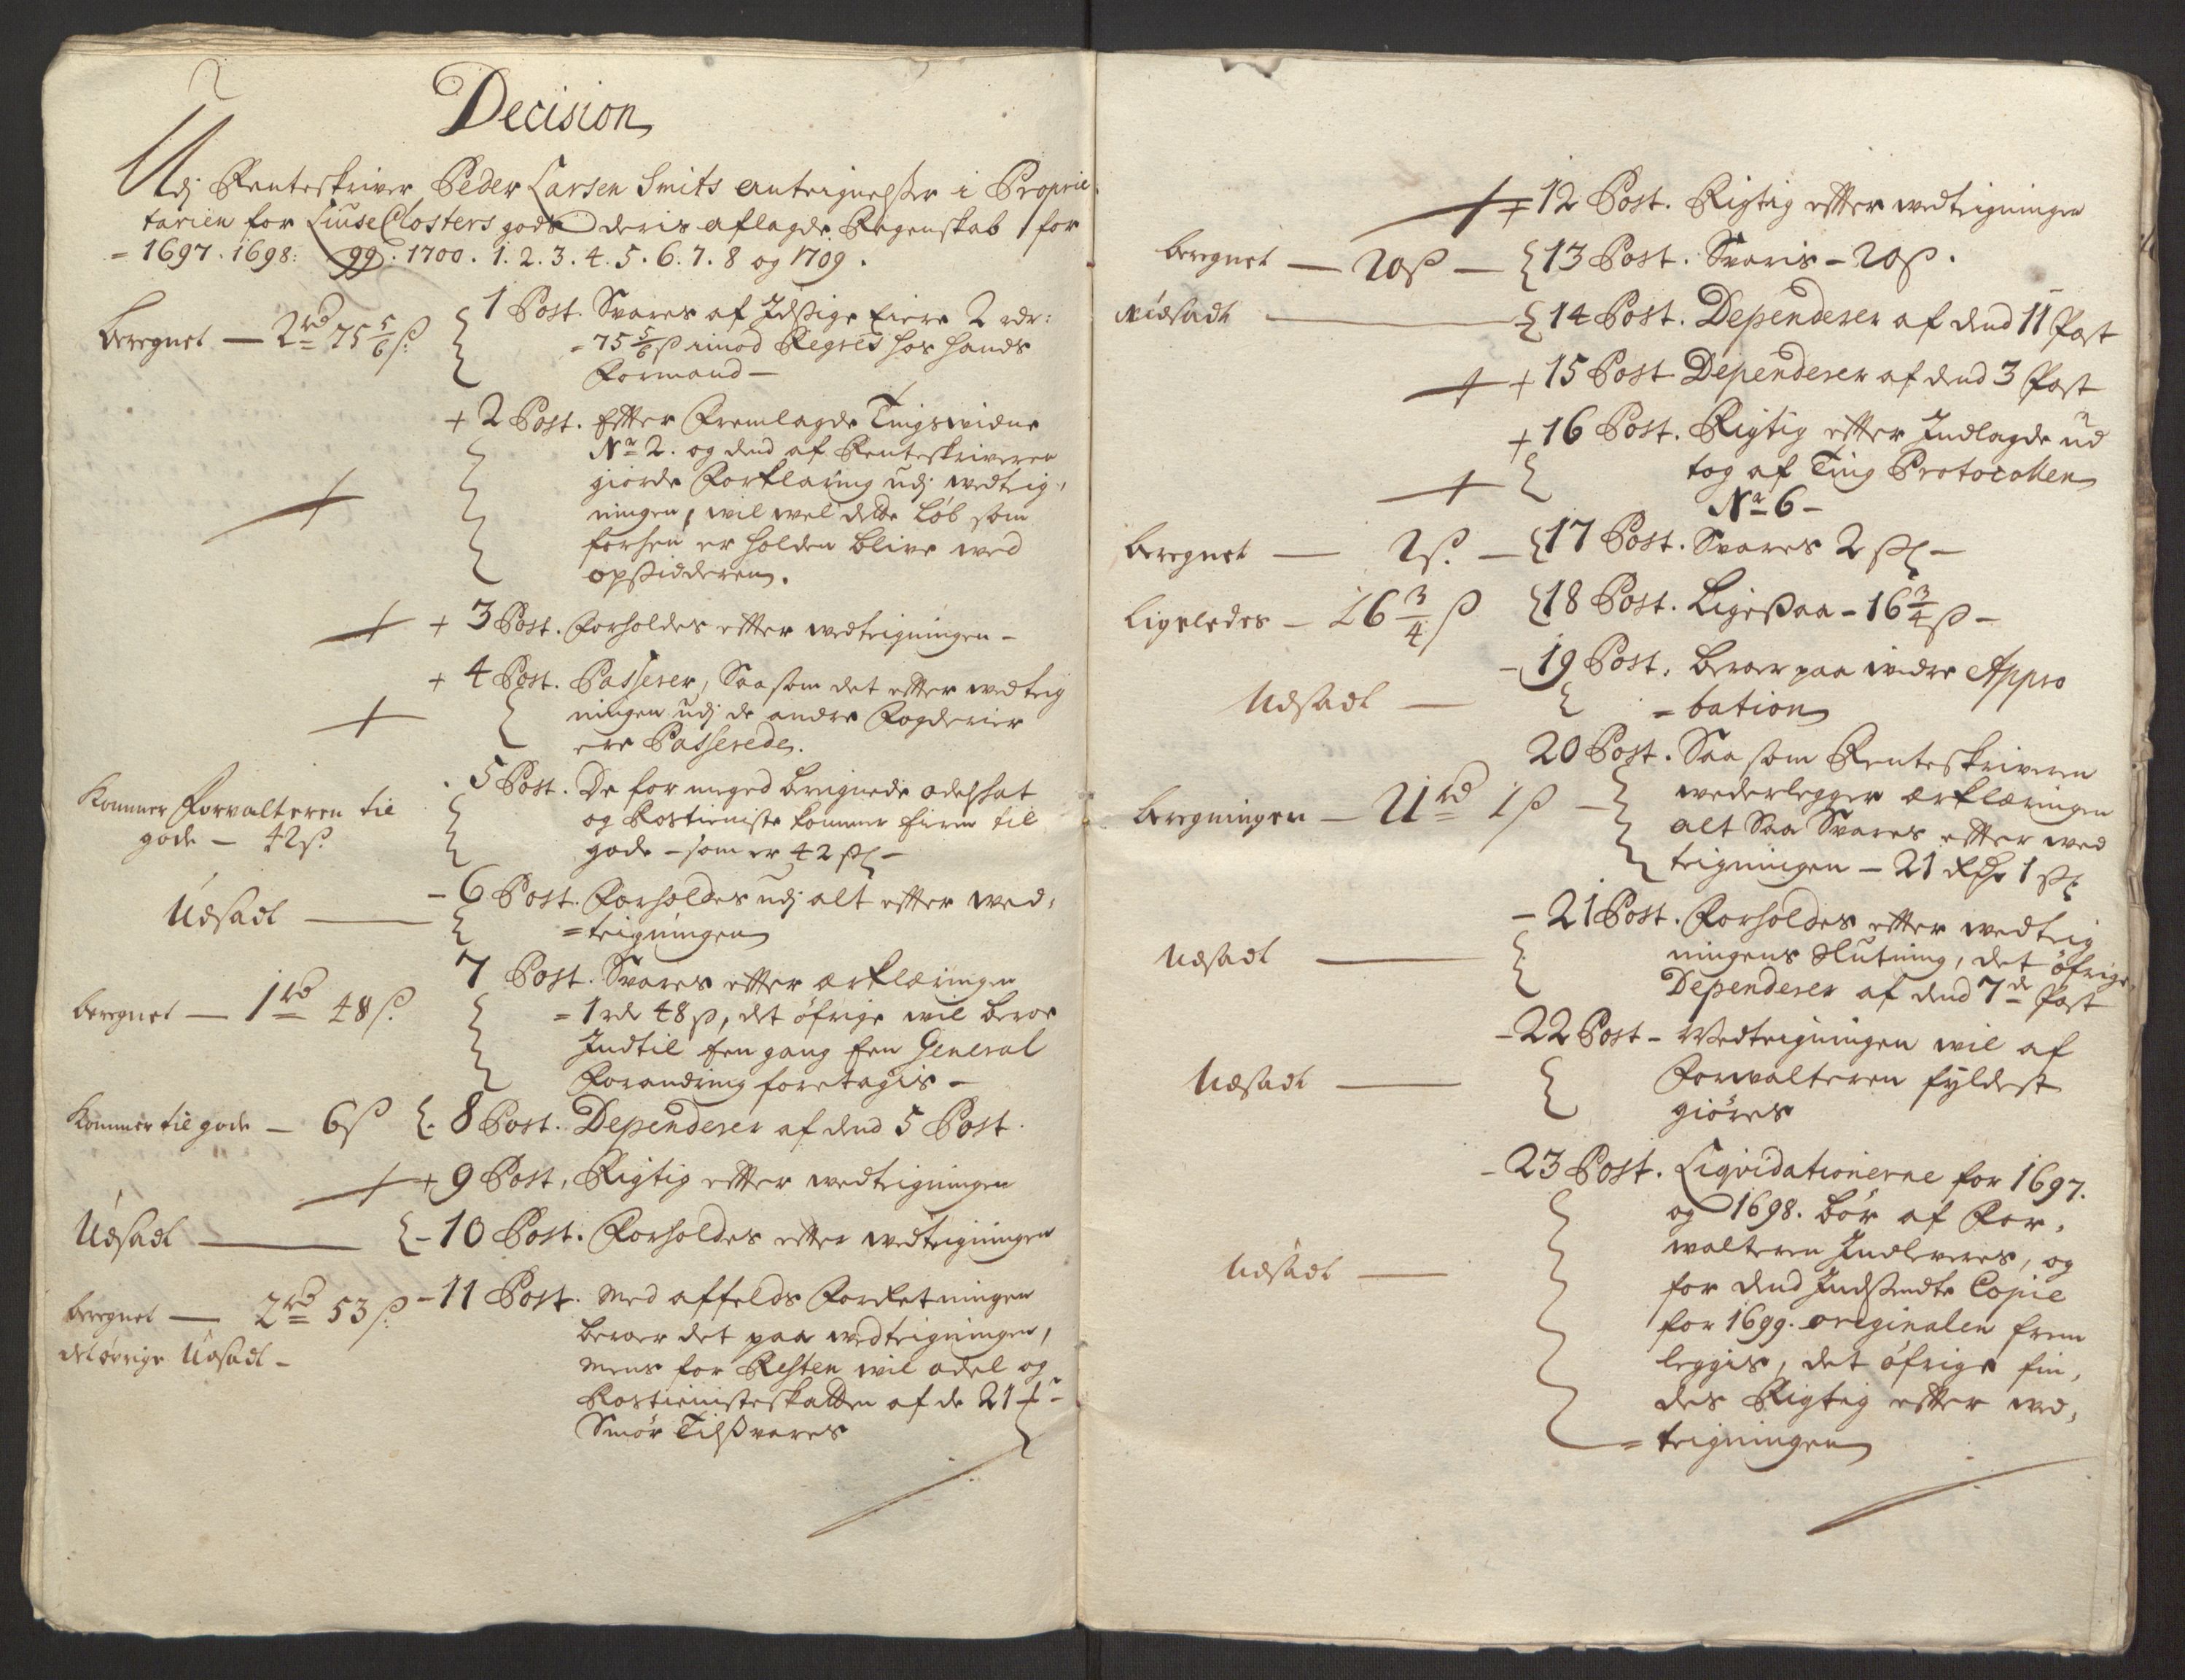 Decision
Udj Renteskriver Peder Larsen Smits Anteignelsser i Proprie
tarien for Liuse Closters gods deris aflagde Regenskab for
= 1697. 1698: 99. 1700. 1. 2. 3. 4. 5. 6. 7. 8 og 1709.
beregnet — 2 rd 75 5/6 ß.
1 Post. Svares af Idssige Eiere 2 rdr:
= 75 5/6 ß imod Regres hos hands
Formand —
+ 2 Post. Efter Fremlagde Tingsvidne
No 2. og dend af Renteskriveren
giorde Forklaring udj wedteig,
ningen, wil wel dette Løb som
forhen er holden blive wed
opssidderen.
+ 3 Post. Forholdes efter wedteigningen –
+ 4 Post. Passerer, Saasom det efter wedteig
ningen udj de andre Fogderier
ere Passerede.
Kommer Forvalteren til
gode — 42 ß.
5 Post. De for meget beregnede odelskat
og Rostieniste kommer Eieren til
gode – som er 42 ß –
Udsadt —
– 6 Post. Forholdes udj alt efter wed,
= teigningen
beregnet — 1 rd 48 ß.
7 Post. Svares efter erklæringen
= 1 rdr 48 ß, det öfrige wil beroe
Indtil Een gang Een General
Forandring foretagis –
Kommer til gode — 6 ß
8 Post. Dependerer af dend 5 Post.
+ 9 Post. Rigtig efter wedteigningen
Udsadt —
– 10 Post. Forholdes efter wedteigningen
beregnet — 2 rd 53 ß.
det övrige Udsadt –
– 11 Post. Med affelds Forretningen
beroer det paa wedteigningen,
mens for Resten wil odel og
Rostienisteskatten af de 21
Smör Tilssvares
+ 12 Post. Rigtig efter wedteigningen
beregnet — 20 ß —
13 Post. Svaris – 20 ß.
udsadt —
14 Post. Dependerer af dend 11 Post
+ 15 Post Dependerer af dend 3 Post
+ 16 Post. Rigtig efter Indlagde ud
tog af Ting Protocollen
No 6 –
beregnet — 2 ß. —
17 Post. Svares 2 ß –
ligeledes – 16 3/4 ß
18 Post. Ligessaa – 16 3/4 ß –
Udsadt —
– 19 Post. beroer paa widre Appro
= bation
beregningen — 21 rd 1 ß –
20 Post. Saasom Renteskriveren
wederlegger Erklæringen
alt Saa Svares efter wed
teigningen – 21 Rdr 1 ß
Udsadt —
– 21 Post. Forholdes efter wedteig
ningens Slutning, det öfrige,
Dependerer af dend 7de Post
Udsadt —
– 22 Post – Wedteigningen wil af
Forwalteren fyldest
giöres
Udsadt —
– 23 Post. Liqvidationerne for 1697.
og 1698. bör af For,
walteren Indleveres, og
for dend Indsendte Copie
for 1699. originalen frem
leggis, det öfrige fin,
des Rigtig efter wed,
= teigningen